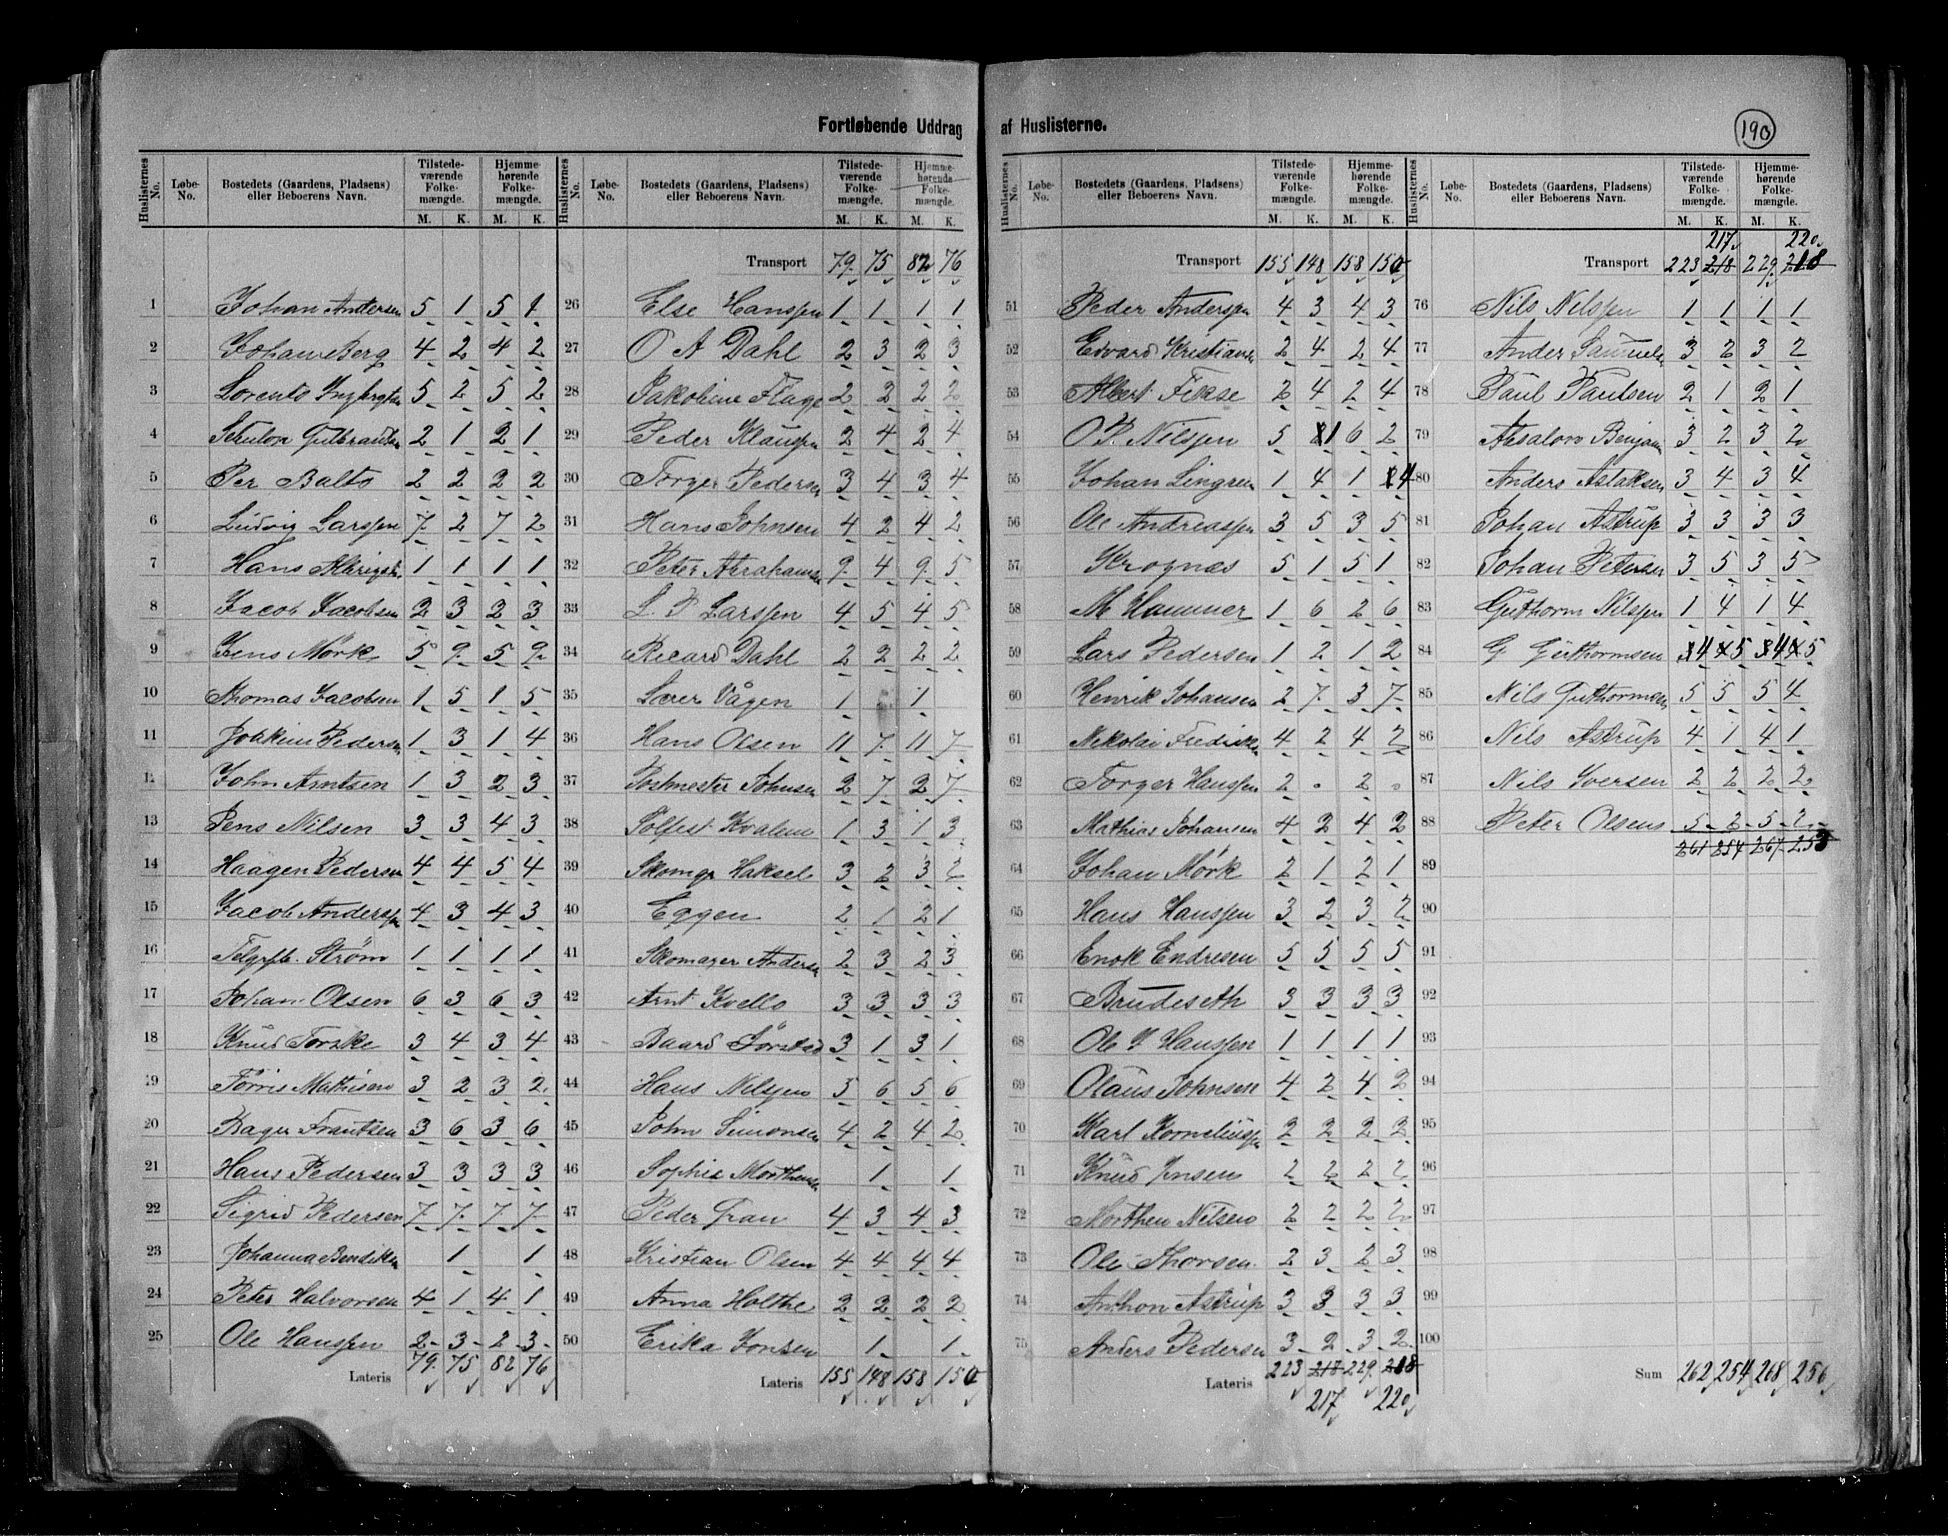 Fortløbende Uddrag af Huslisterne.
190
Huslisternes No. Løbe-No. Bostedets (Gaardens, Pladsens) eller Beboerens Navn. Tilstedeværende Folkemængde. M. K. Hjemmehørende Folkemængde. M. K.
1 Johan Andersen 5 1 5 1
2 Johan Berg 4 2 4 2
3 Lorents 5 2 5 2
4 2 1 2 1
5 Per Balto 2 2 2 2
6 Ludvig Larssen 7 2 7 2
7 Hans 1 1 1 1
8 Jacob Jacobsen 2 3 2 3
9 Jens Mørk 5 9 5 9
10 Thomas Jacobsen 1 5 1 5
11 Joakim Pedersen 1 3 1 4
12 John Arntsen 1 3 2 3
13 Jens Nilsen 3 3 4 3
14 Haagen Pedersen 4 4 5 4
15 Jacob Anderssen 4 3 4 3
16 Telgrfb. Strøm 1 1 1 1
17 Johan Olsen 6 3 6 3
18 Knud Torske 3 4 3 4
19 Tørris Mathisen 3 2 3 2
20 Bager Frantsen 3 6 3 6
21 Hans Pedersen 3 3 3 3
22 Sigrid Pedersen 7 7 7 7
23 Johanna Bendiksen 1 1
24 Peter Halvorsen 4 1 4 1
25 Ole Hanssen 2 3 2 3
Lateris 79 75 82 76
Huslisternes No. Løbe-No. Bostedets (Gaardens, Pladsens) eller Beboerens Navn. Tilstedeværende Folkemængde. M. K. Hjemmehørende Folkemængde. M. K.
Transport 79 75 82 76
26 Else Hanssen 1 1 1 1
27 O A Dahl 2 3 2 3
28 Jakobine Flage 2 2 2 2
29 Peder Klaussen 2 4 2 4
30 Torger Pedersen 3 4 3 4
31 Hans Johnsen 4 2 4 2
32 Peter Abrahamsen 9 4 9 5
33 L. P Larssen 4 5 4 5
34 Ricard Dahl 2 2 2 2
35 Lærer Vågen 1 1
36 Hans Olsen 11 7 11 7
37 Postmester Johnsen 2 7 2 7
38 Solfest Kvalem 1 3 1 3
39 Skomgr Haksel 3 2 3 2
40 Eggen 2 1 2 1
41 Skomager Andersen 2 3 2 3
42 Arnt Kvello 3 3 3 3
43 Baard Sørstad 3 1 3 1
44 Hans Nilssen 5 6 5 6
45 John Simonsen 4 2 4 2
46 Sophie Morthensen 1 1
47 Peder Gran 4 3 4 3
48 Kristian Olsen 4 4 4 4
49 Anna Holthe 2 2 2 2
50 Erika Jonsen 1 1
Lateris 155 148 158 150
Huslisternes No. Løbe-No. Bostedets (Gaardens, Pladsens) eller Beboerens Navn. Tilstedeværende Folkemængde. M. K. Hjemmehørende Folkemængde. M. K.
Transport 155 148 158 150
51 Peder Anderssen 4 3 4 3
52 Edvard Kristiansen 2 4 2 4
53 Albert Fikse 2 4 2 4
54 O P Nilssen 5 1 6 2
55 Johan Lingren 1 4 1 4
56 Ole Andreassen 3 5 3 5
57 Krognæs 5 1 5 1
58 M Hammer 1 6 2 6
59 Lars Pedersen 1 2 1 2
60 Henrik Johansen 2 7 3 7
61 Nikolai Fredriksen 4 2 4 2
62 Torger Hanssen 2 0 2 0
63 Mathias Johansen 4 2 4 2
64 Johan Mørk 2 1 2 1
65 Hans Hanssen 3 2 3 2
66 Enok Endresen 5 5 5 5
67 Brudeseth 3 3 3 3
68 Ole J Hanssen 1 1 1 1
69 Olaus Johnsen 4 2 4 2
70 Karl Korneliussen 2 2 2 2
71 Knud Jensen 2 2 2 2
72 Morthen Nilsen 2 2 2 2
73 Ole Thorsen 2 3 2 3
74 Anthon Astrup 3 3 3 3
75 Anders Pedersen 3 2 3 2
Lateris 223 217 229 218
217 220
Huslisternes No. Løbe-No. Bostedets (Gaardens, Pladsens) eller Beboerens Navn. Tilstedeværende Folkemængde. M. K. Hjemmehørende Folkemængde. M. K.
217 220
Transport 223 218 229 218
76 Nils Nilssen 1 1 1 1
77 Ander Samuels 3 2 3 2
78 Paul Paulsen 2 1 2 1
79 Absalon Benjam 3 2 3 2
80 Anders Aslaksen 3 4 3 4
81 Johan Astrup 3 3 3 3
82 Johan Petersen 3 5 3 5
83 Guthorm Nilssen 1 4 1 4
84 G Guthormsen 4 5 4 5
85 Nils Guthormsen 5 5 5 4
86 Nils Astrup 4 1 4 1
87 Nils Iversen 2 2 2 2
88 Peter Olsens 5 2 5 2
89 261 254 267 253
90
91
92
93
94
95
96
97
98
99
100
Sum 262 254 268 256